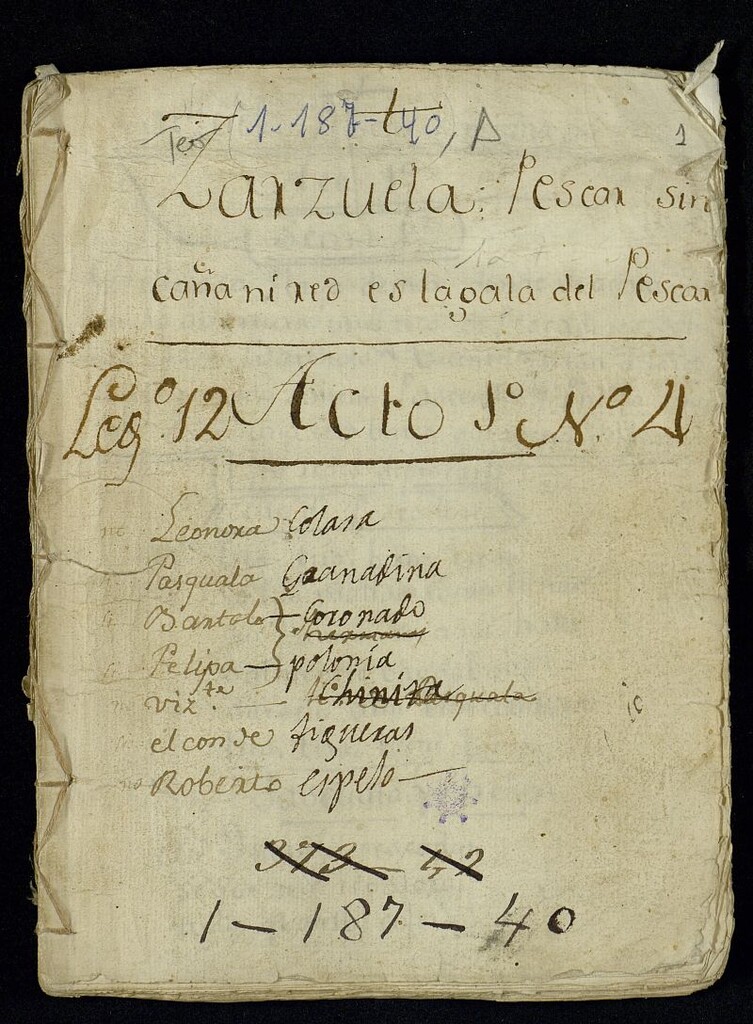 Tea 1-187-40, A
1
Zarzuela: Pescar sin
caña ni red es la gala del Pescar
Leg.º 12 Acto 1º Nº 4
Leonora Colasa
Pasquala Granadina
Bartolo Coronado
hermanos
Felipa polonia
viz.te Chinita Pasquala
el conde figueras
Roberto espejo
373-42
1-187-40